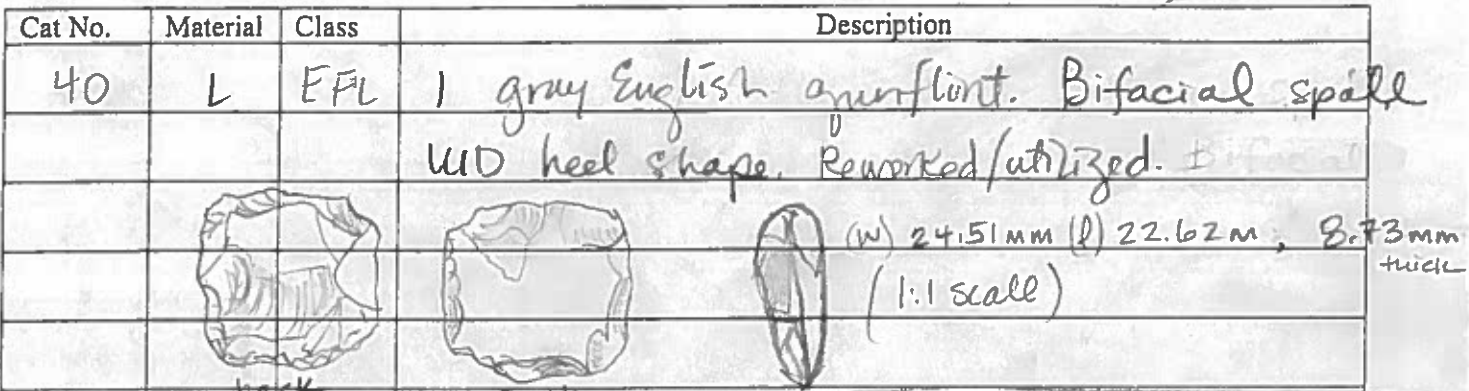 Cat No. Material Class Description
40 L EFL 1 gray English gunflint. Bifacial spall
UID heel shape. Reworked/utilized. Bifacial
(w) 24.51mm (l) 22.62m, 8.73mm
thick
(1:1 scale)
back